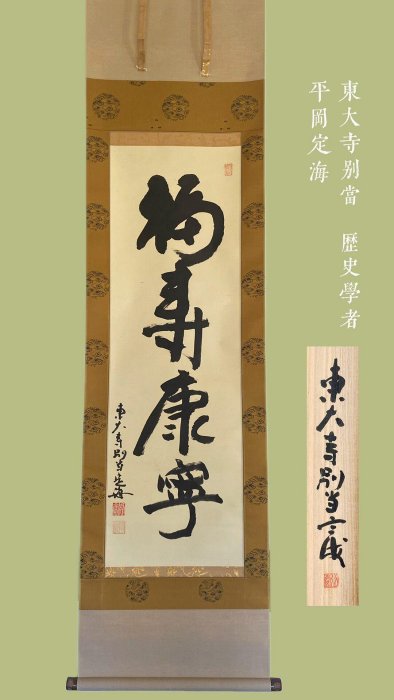 東大寺別當 歷史學者
平岡定海
福寿康寧
東大寺別当定海
東大寺別当言成